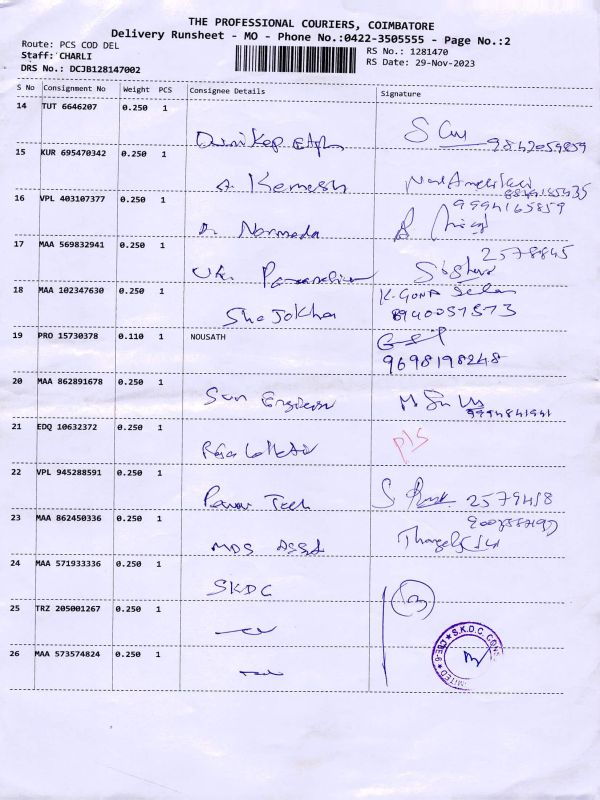 THE PROFESSIONAL COURIERS, COIMBATORE
Delivery Runsheet - MO - Phone No.:0422-3505555 - Page No.:2
Route: PCS COD DEL RS No.: 1281470
Staff: CHARLI RS Date: 29-Nov-2023
DRS No.: DCJB128147002
S No Consignment No Weight PCS Consignee Details Signature
14 TUT 6646207 0.250 1
9842059859
15 KUR 695470342 0.250 1
A. Kemesh
16 VPL 403107377 0.250 1 9994165859
D. Normada
17 MAA 569832941 0.250 1 2578845
18 MAA 102347630 0.250 1 K. GONA
ShaJokhan 8940057573
19 PRO 15730378 0.110 1 NOUSATH
9698198248
20 MAA 862891678 0.250 1
Sun 9994841941
21 EDQ 10632372 0.250 1 pls
Raja
22 VPL 945288591 0.250 1
Tech 2579418
23 MAA 862450336 0.250 1
MDS
24 MAA 571933336 0.250 1
SKDC
25 TRZ 205001267 0.250 1 (3)
26 MAA 573574824 0.250 1 S.K.D.C. CONS